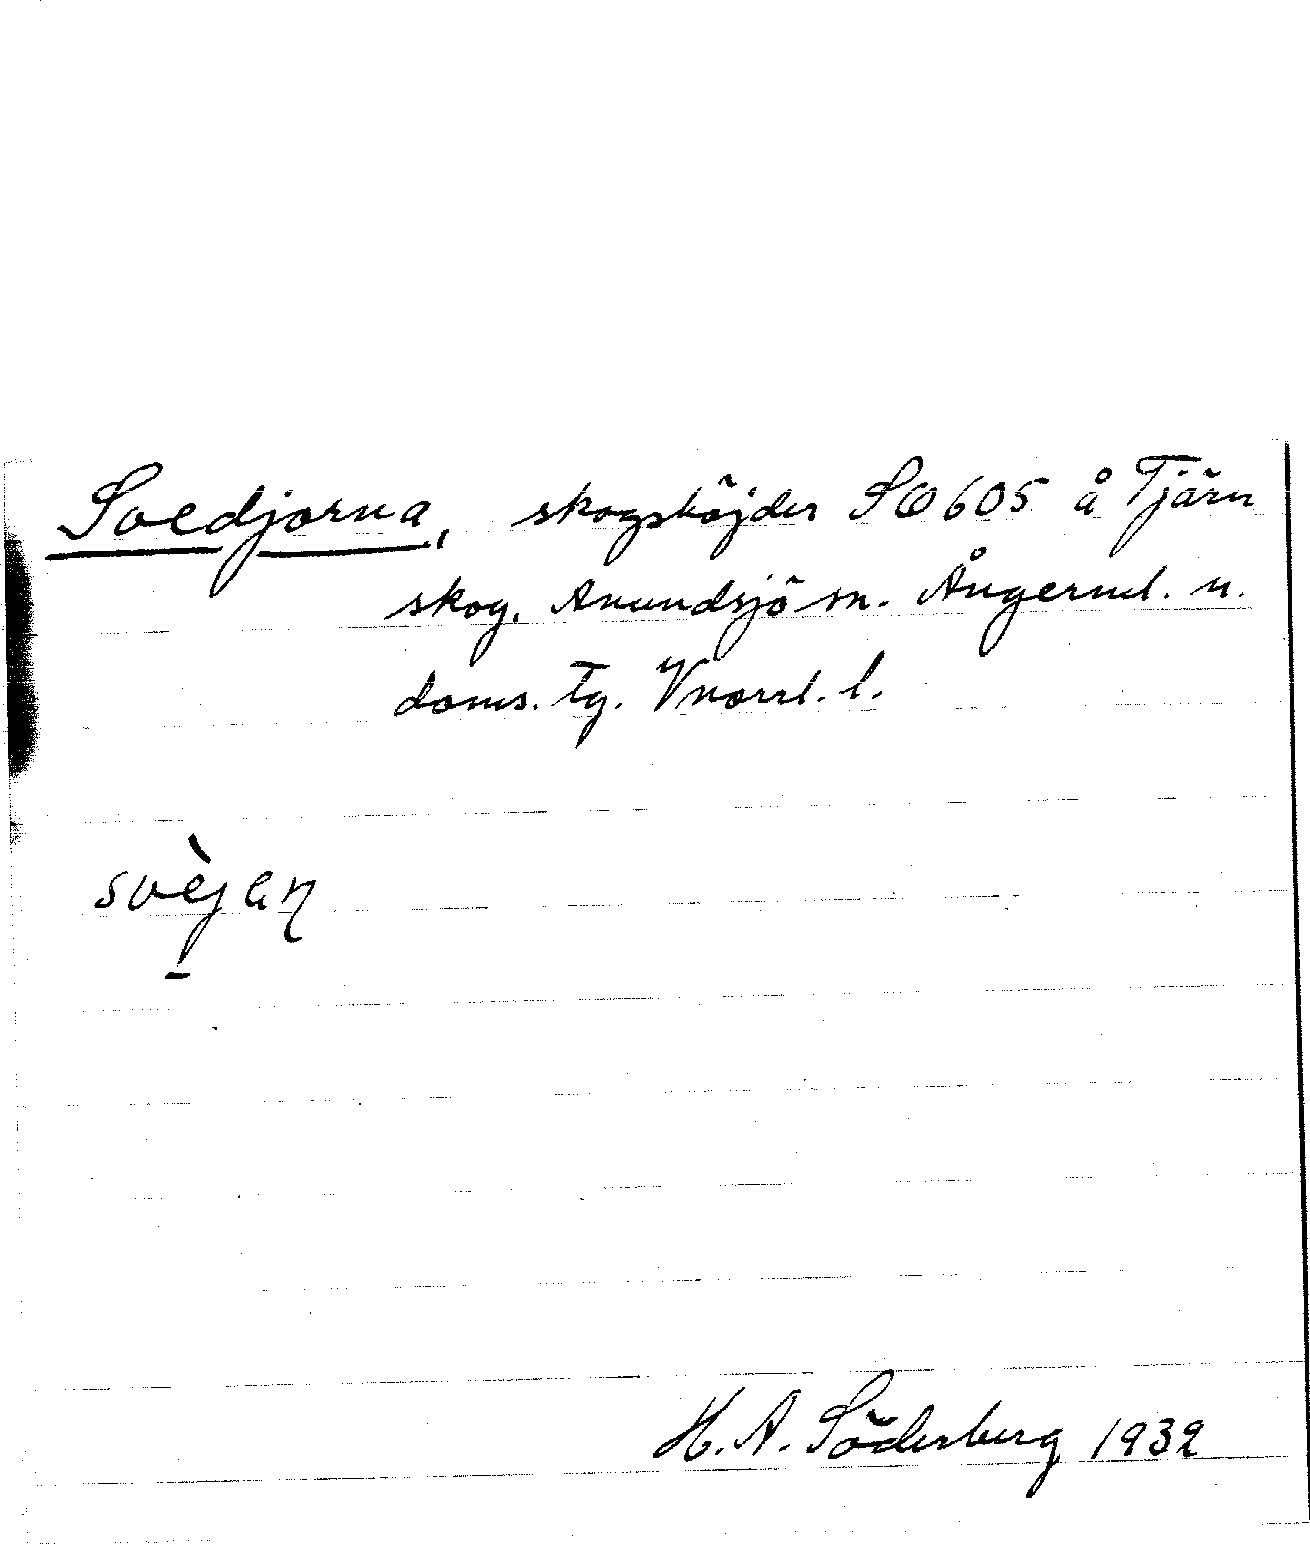 Svedjorna, skogshöjder SO605 å Tjärn
skog. Anundsjö sn. Ångerml. n.
doms. tg. Vnorrl. l.
svèjaṇ
H. A. Söderberg 1932